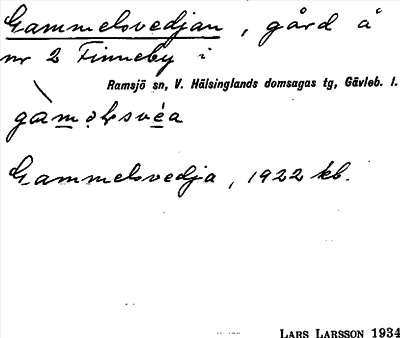 Gammelsvedjan, gård å
nr 2 Finneby i
Ramsjö sn, V. Hälsinglands domsagas tg, Gävleb. l.
Gammelsvedja, 1922 kb.
LARS LARSSON 1934